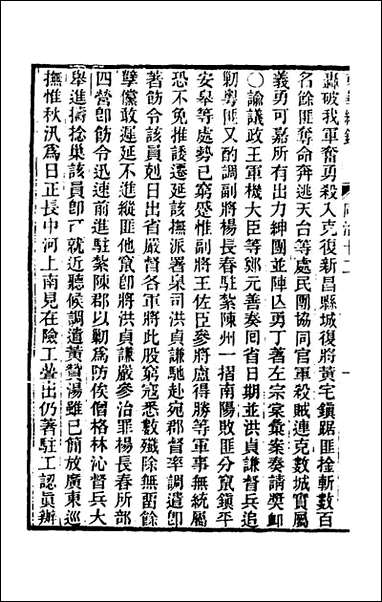 轟破我軍奮勇殺入克復新昌縣城復將黃宅鎮踞匪擒斬數百
名餘匪奪命奔逃天台等處民團協同官軍殺賊連克數城實屬
義勇可嘉所有出力紳團並陣亡勇丁著左宗棠彙案奏請獎卹
〇諭議政王軍機大臣等鄭元善奏囘省日期並洪貞謙督兵追
勦粵匪又酌調副將楊長春駐紮陳州一摺南陽敗匪分竄鎮平
安皋等處勢已窮蹙惟副將王佐臣參將盧得勝等軍事無統屬
恐不免推諉遷延該撫派署臬司洪貞謙馳赴宛郡督率調遣卽
著飭令該員剋日出省嚴督各軍將此股窮寇悉數殲除無畱餘
孽儻敢遲延不進縱匪他竄卽將洪貞謙嚴參治罪楊長春所部
四營卽飭令迅速前進駐紮陳郡以勦爲防俟僧格林沁督兵大
舉進擣捻巢該員卽可就近聽候調遣黃贊湯雖已簡放廣東巡
撫惟秋汛爲日正長中河上南見在險工疊出仍著駐工認眞辦